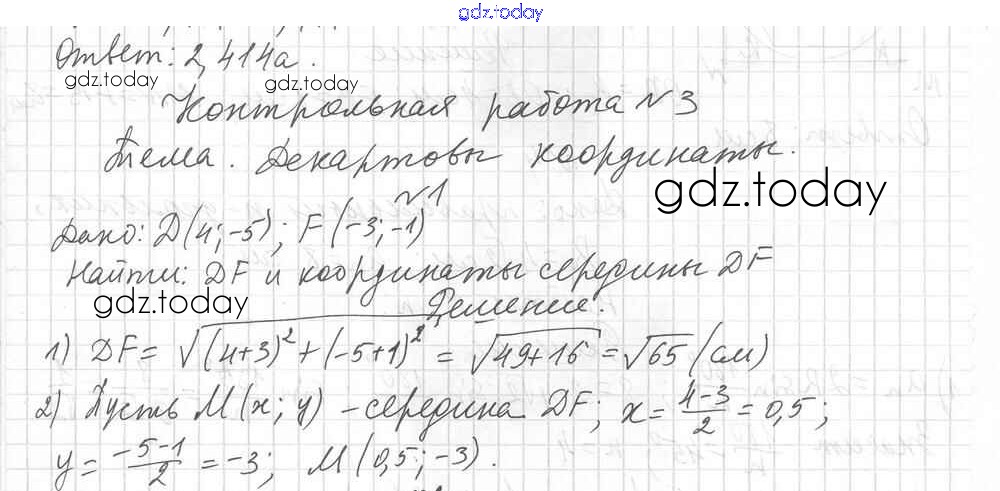 gdz.today
Ответ: 2,414a.
gdz.today
Контрольная работа №3
Тема. Декартовы координаты.
gdz.today
№1
Дано: D(4;-5); F(-3;-1)
Найти: DF и координаты середины DF
gdz.today
Решение.
1) DF = √((4+3)²+(-5+1)²) = √(49+16) = √65 (см)
2) Пусть M(x; y) - середина DF; x = (4-3)/2 = 0,5;
y = (-5-1)/2 = -3; M(0,5; -3).